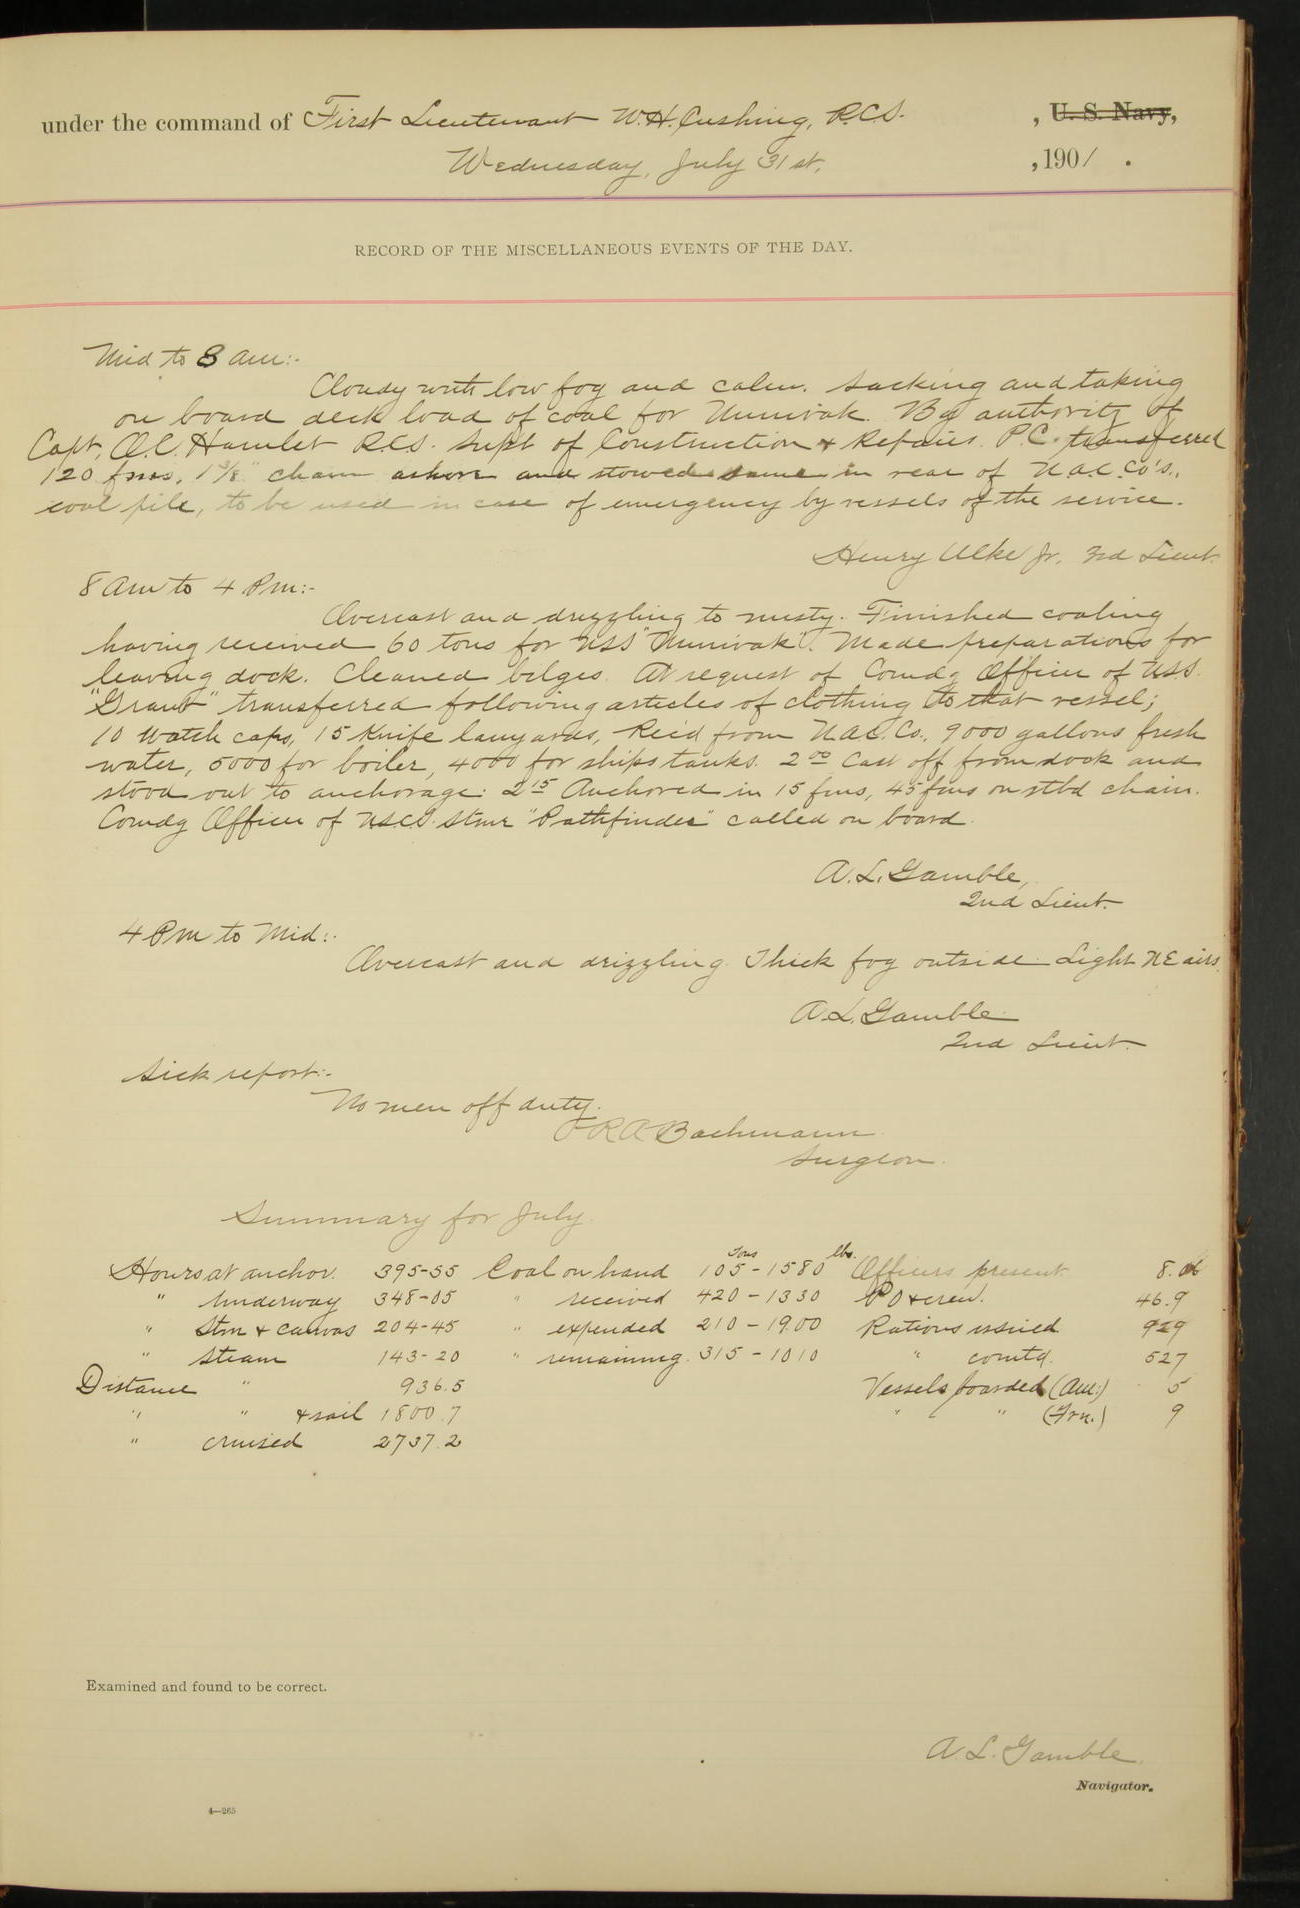 under the command of First Lieutenant W.H. Cushing, R.C.S. , U. S. Navy,
Wednesday, July 31st, , 1901 .
RECORD OF THE MISCELLANEOUS EVENTS OF THE DAY.
Mid to 8 am:-
Cloudy with low fog and calm. Sacking and taking
on board deck load of coal for Nunivak. By authority of
Capt. O.C. Hamlet R.C.S. Supt of Construction & Repairs. P.C. transferred
120 fms. 1 3/8" chain ashore and stowed same in rear of N.A.C. Co's.,
coal pile, to be used in case of emergency by vessels of the service.
Henry Ulke Jr. 3rd Lieut.
8 am to 4 Pm:-
Overcast and drizzling to misty. Finished coaling
having received 60 tons for USS "Nunivak". Made preparations for
leaving dock. Cleaned bilges. At request of Comdg Officer of USS.
"Grant" transferred following articles of clothing to that vessel;
10 Watch caps, 15 Knife lanyards, Rec'd from N.A.C. Co., 9000 gallons fresh
water, 5000 for boiler, 4000 for ships tanks. 2 00 Cast off from dock and
stood out to anchorage: 2 15 Anchored in 15 fms, 45 fms on stbd chain.
Comdg Officer of USCS. Stmr "Pathfinder" called on board.
A. L. Gamble,
2nd Lieut.
4 Pm to Mid:-
Overcast and drizzling. Thick fog outside. Light NE airs.
A. L. Gamble
2nd Lieut.
Sick report:-
No men off duty.
R A Bachmann
Surgeon.
Summary for July.
tons lbs.
Hours at anchor. 395-55 Coal on hand 105-1580 Officers present 8.
" Underway 348-05 " received 420-1330 P O & crew. 46.9
" Stm & canvas 204-45 " expended 210-1900 Rations issued 929
" Steam 143-20 " remaining. 315-1010 " comtd. 527
Distance " 936.5 Vessels boarded (Am:) 5
" " & sail 1800.7 " " (Frn.) 9
" cruised 2737.2
Examined and found to be correct.
A. L. Gamble.
Navigator.
4—265